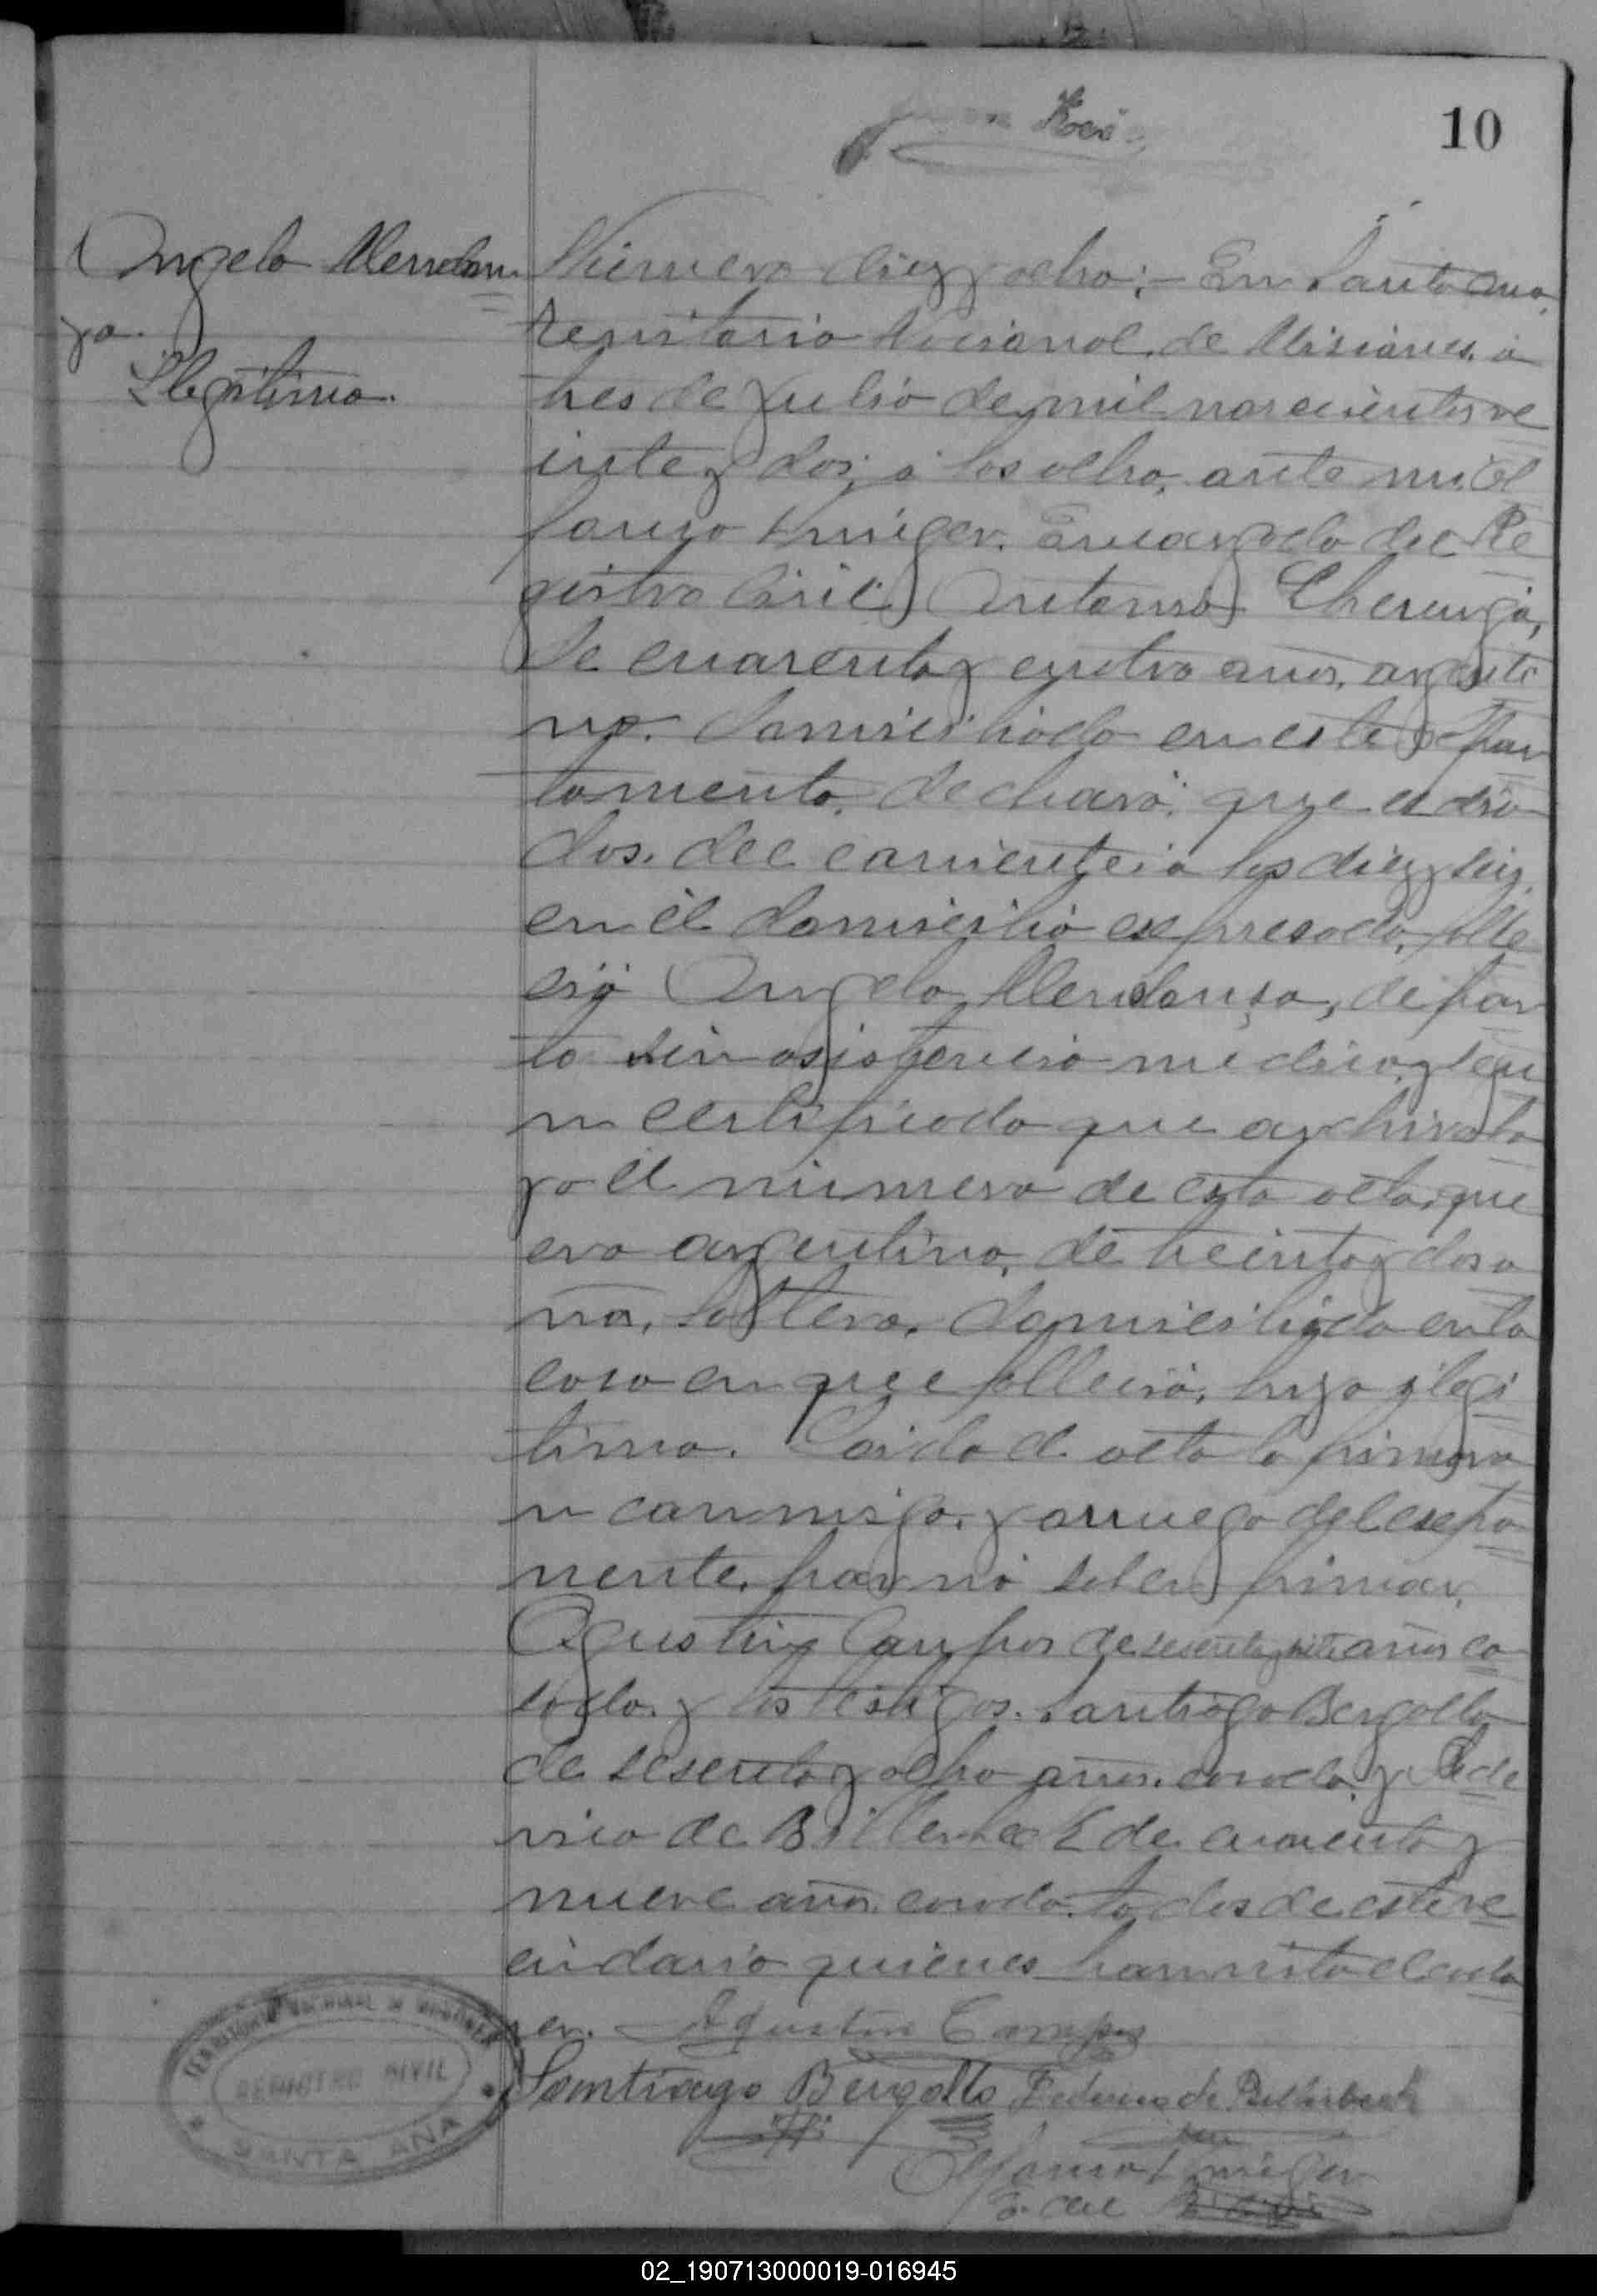 10
Angela Mendon
za.
Ilegitima.
Número diez y ocho:- En Santa Ana,
territorio Nacional de Misiones, a
tres de Julio de mil novecientos ve
inte y dos, a las ocho, ante mi, 
Kruger, Encargado del Re
gistro Civil, Antonio
de cuarenta y cuatro años, argenti
no, domiciliado en este depar
tamento, declaró: que el dia
dos, del corriente a las diez y seis
en el domicilio expresado, falle
ció Angela Mendonza, de par
to sin asistencia medica, segu
n certificado que archivo ba
jo el número de esta acta, que
era argentina, de treinta y dos a
ños, soltera, domiciliada en la
casa en que falleció, hija ilegi
tima. Leida el acta la firmaro
n conmigo, y a ruego del expo
nente, por nó saber firmar,
Agustin Campos de sesenta y siete años ca
sado, y los testigos, Santiago Bergallo
de sesenta y ocho años, casado, y Fede
rico de Billerbeck de cuarenta y
nueve años casado, todos de este ve
cindario quienes han visto el cada
ver. Agustin Campos
Santiago Bergallo Federico de Billerbeck
Kruger
E. del R. Civil
TERRITORIO NACIONAL DE MISIONES
REGISTRO CIVIL
SANTA ANA
02_190713000019-016945